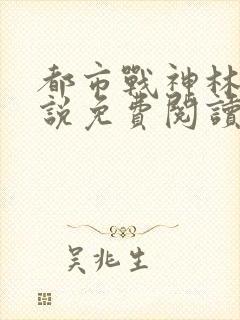 都市戰神林
說免費閱讀
吴兆生